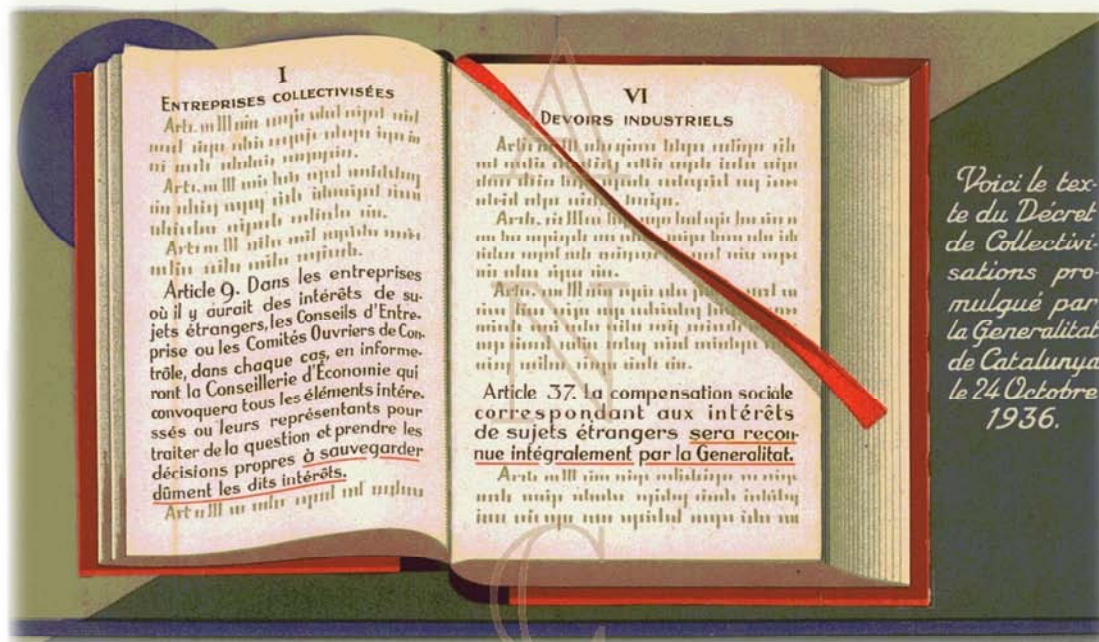 I
ENTREPRISES COLLECTIVISÉES
Article 9. Dans les entreprises
où il y aurait des intérêts de su-
jets étrangers, les Conseils d'Entre-
prise ou les Comités Ouvriers de Con-
trôle, dans chaque cas, en informe-
ront la Conseillerie d'Économie qui
convoquera tous les éléments intére-
ssés ou leurs représentants pour
traiter de la question et prendre les
décisions propres à sauvegarder
dûment les dits intérêts.
VI
DEVOIRS INDUSTRIELS
Article 37. La compensation sociale
correspondant aux intérêts
de sujets étrangers sera recon-
nue intégralement par la Generalitat.
Voici le tex-
te du Décret
de Collectivi-
sations pro-
mulgué par
la Generalitat
de Catalunya
le 24 Octobre
1936.
A
N
C